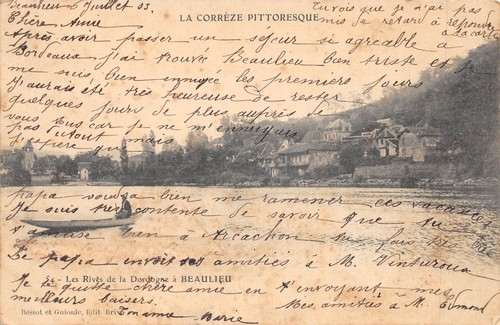 Beaulieu 6 Juillet 03.
Tu vois que je n'ai pas
LA CORRÈZE PITTORESQUE
mis de retard à répondre
à ta carte
Chère Amie
Après avoir passer un séjour si agréable à
Bordeaux j'ai trouvé Beaulieu bien triste et je
me suis bien ennuyée les premiers jours
J'aurais été très heureuse de rester
quelques jours de plus auprès de
vous tous car je ne m'ennuyais
pas du tout
J'espère que
papa voudra bien me ramener ces vacances
Je suis très contente de savoir que tu
t'amuse bien à Arcachon tu fais
54 - Les Rives de la Dordogne à BEAULIEU
De papa envoit ses amitiés à M.
Je te quitte chère amie en t'envoyant mes
meilleurs baisers.
Mes amitiés à M.
Bessot et Guionie, Edit Brive
Ton amie Marie